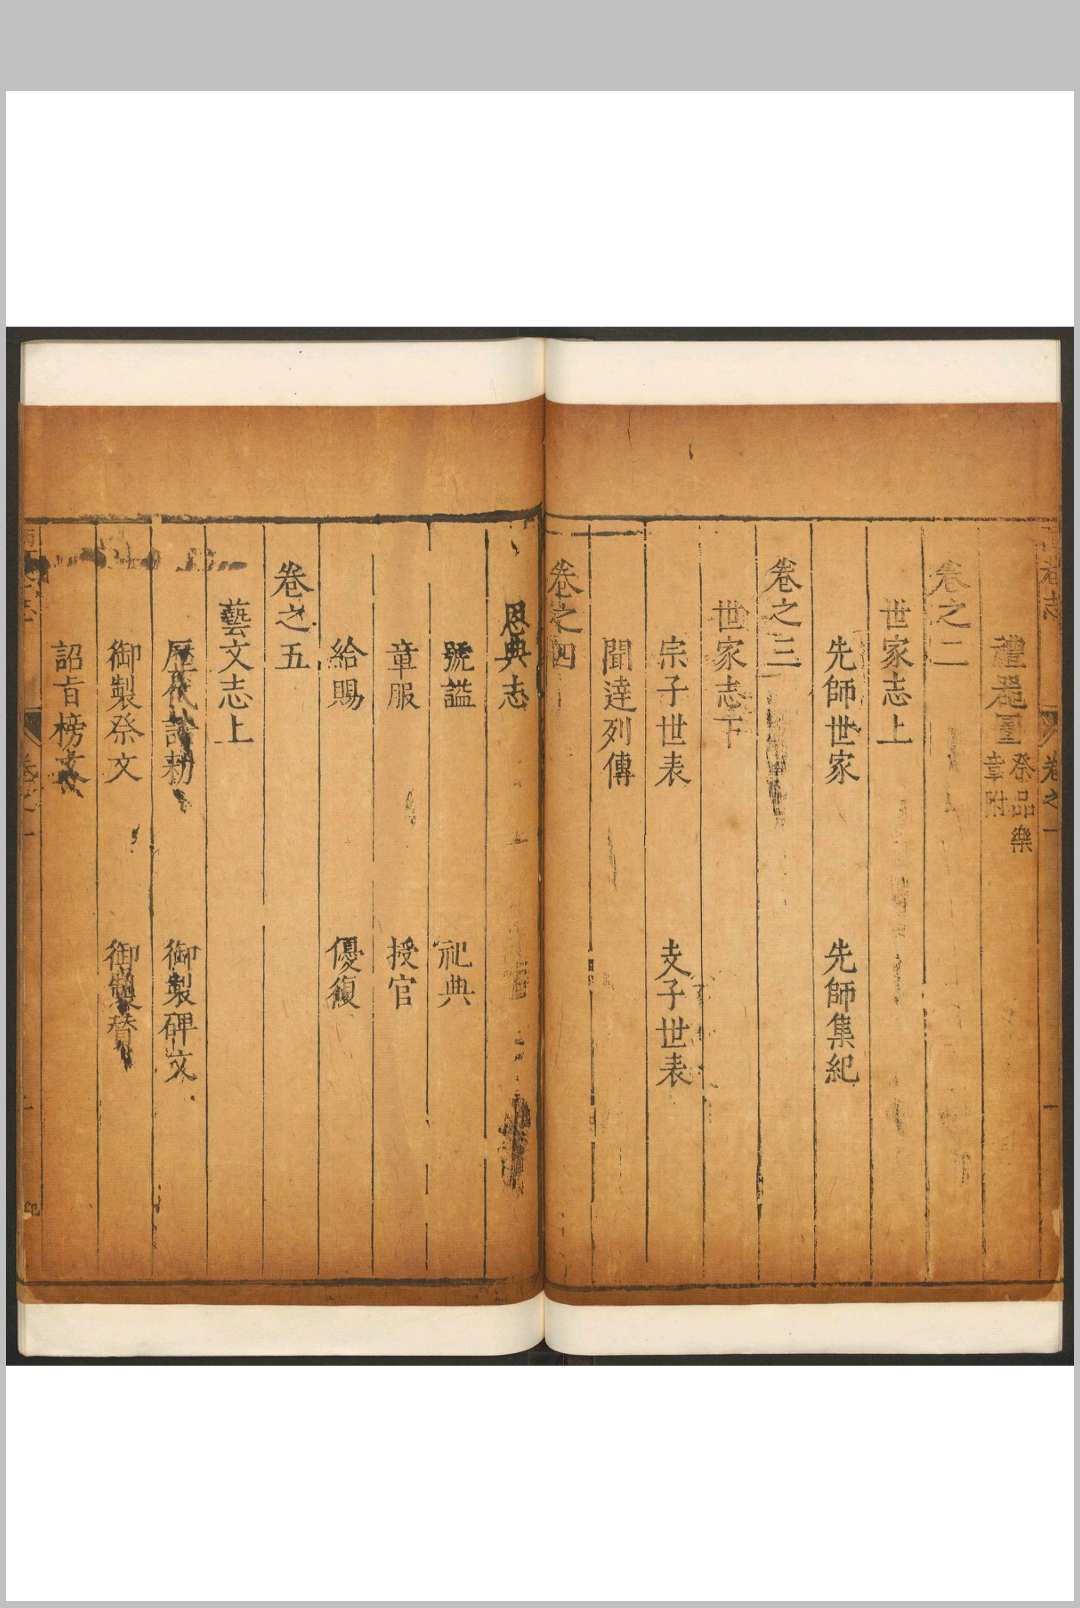 禮器圖 祭品樂章附
卷之二
世家志上
先師世家 先師集紀
卷之三
世家志下
宗子世表 支子世表
聞達列傳
卷之四
恩典志
號謚 祀典
章服 授官
給賜 優復
卷之五
藝文志上
歷代詔勅 御製碑文
御製祭文 御製贊
詔旨榜文